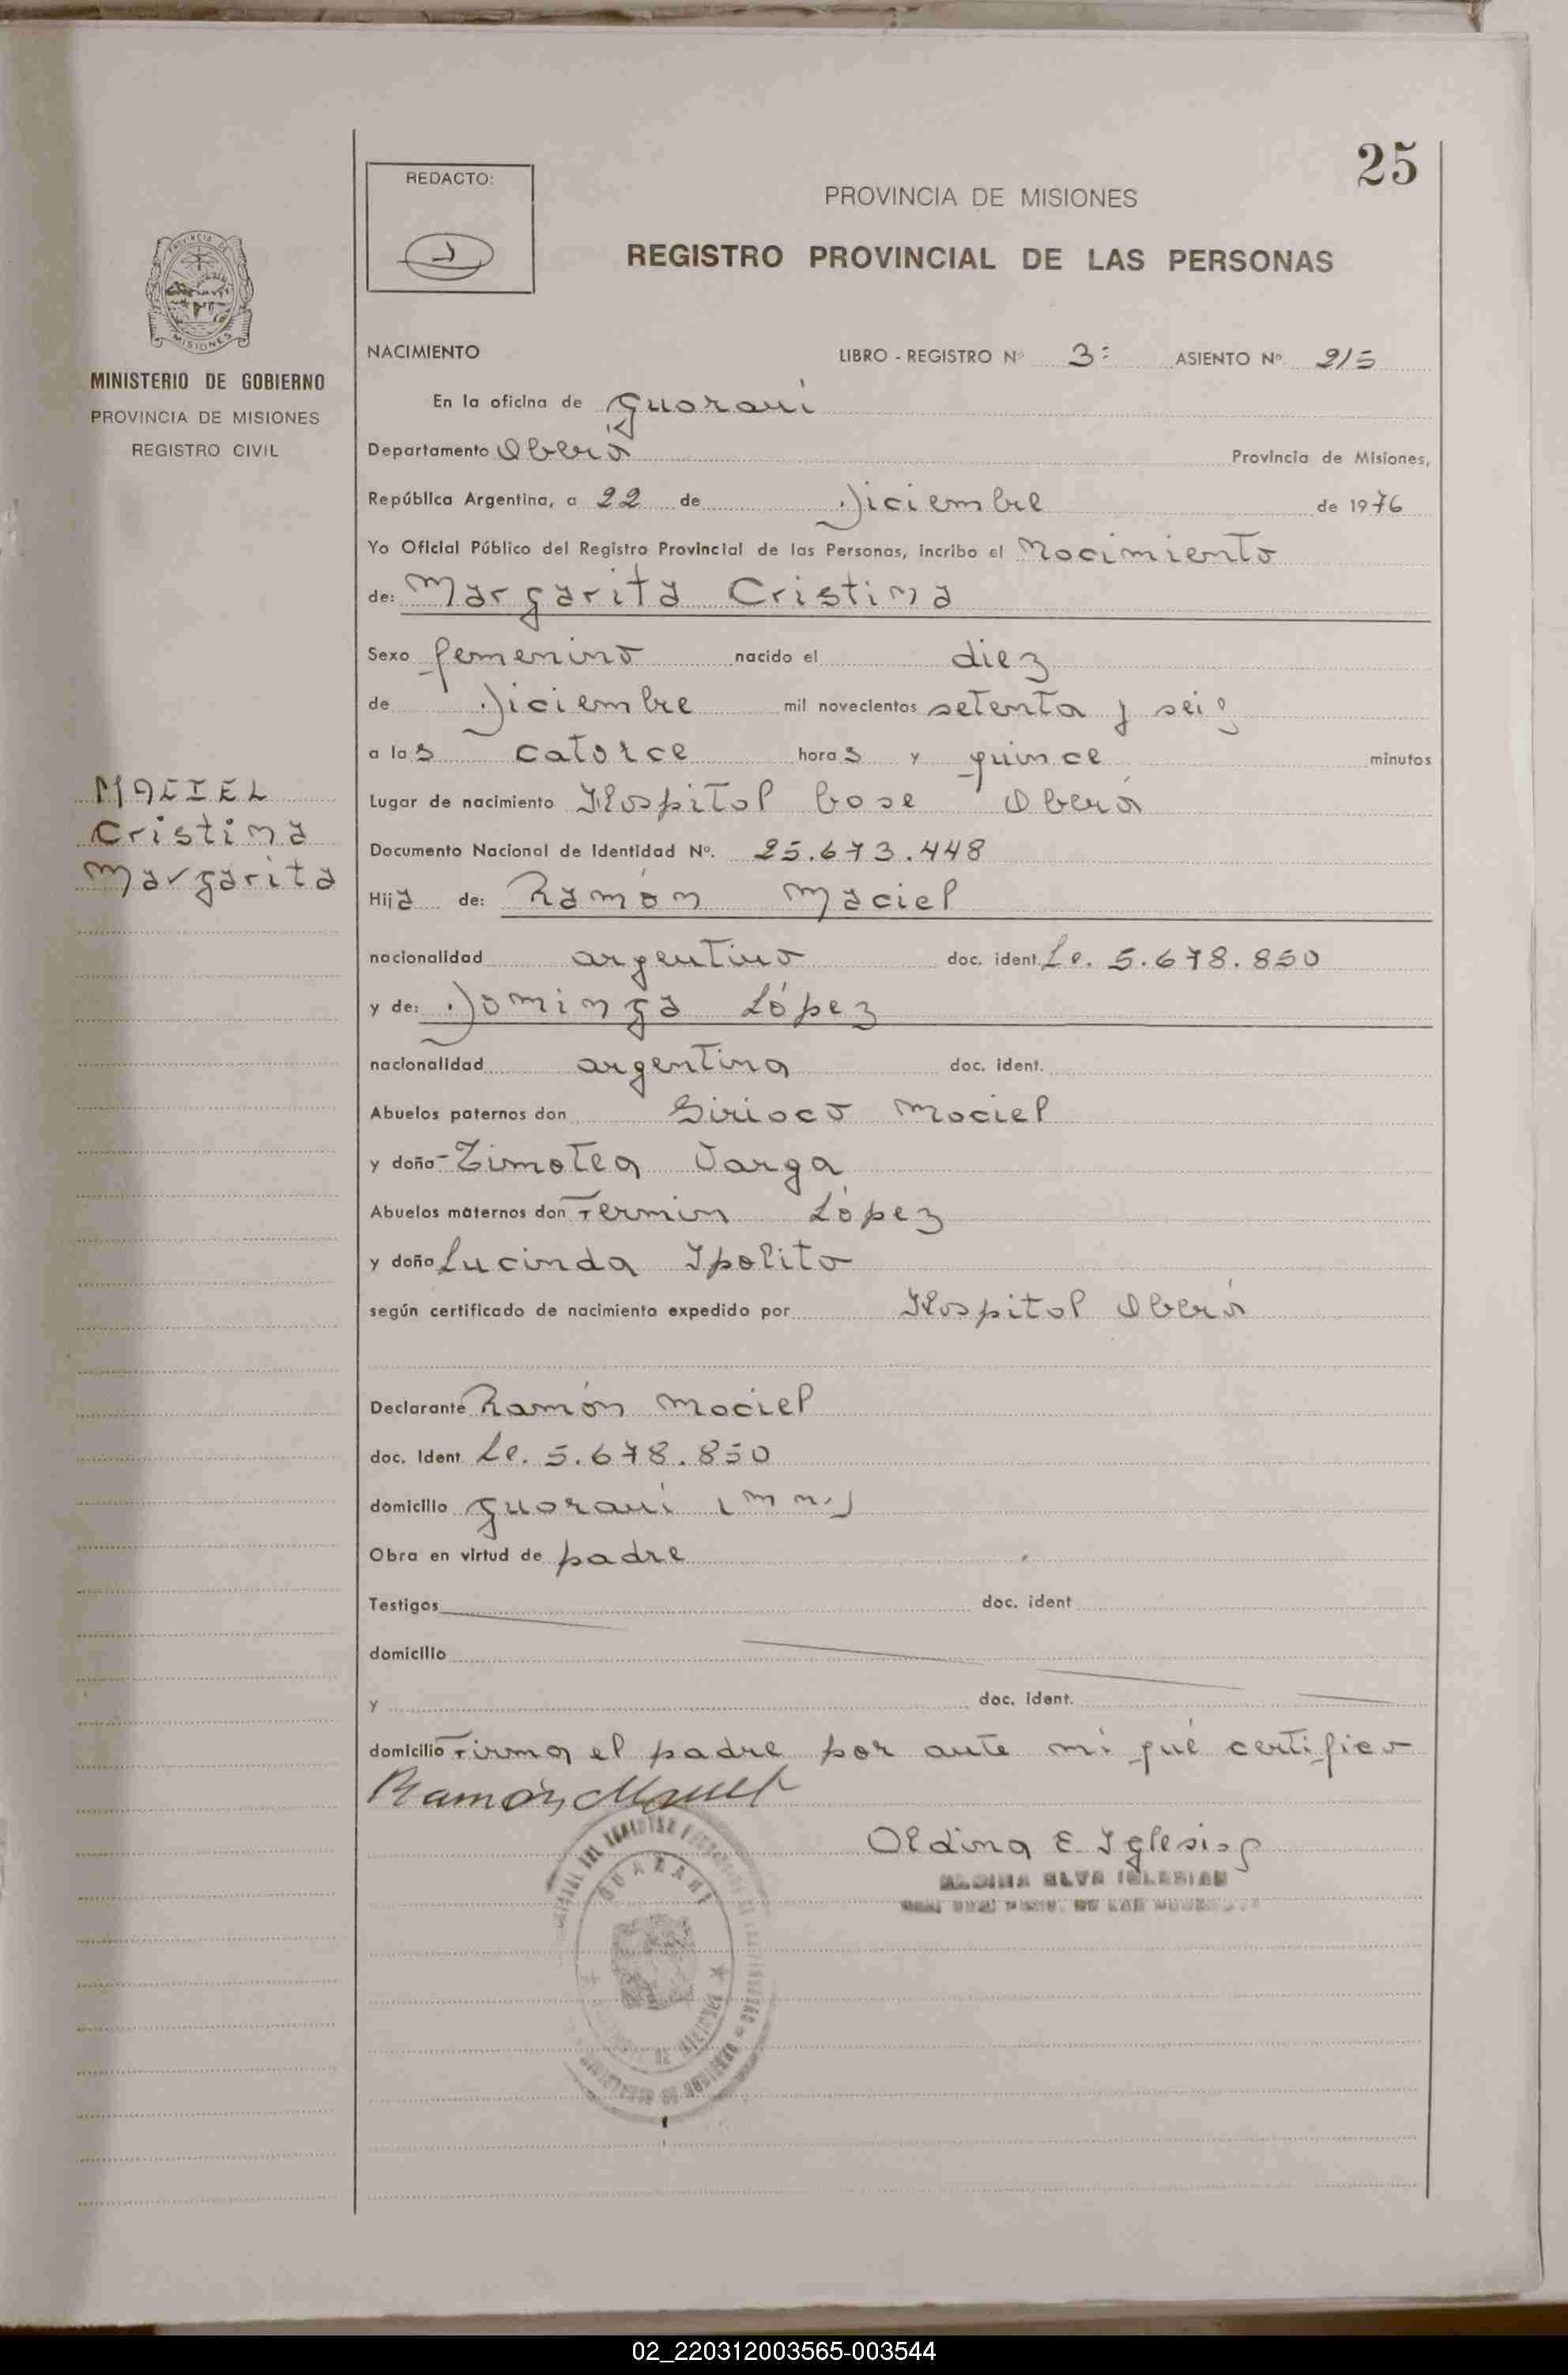 25
REDACTO:
PROVINCIA DE MISIONES
REGISTRO PROVINCIAL DE LAS PERSONAS
PROVINCIA DE
MISIONES
MINISTERIO DE GOBIERNO
PROVINCIA DE MISIONES
REGISTRO CIVIL
NACIMIENTO LIBRO - REGISTRO Nº 3º ASIENTO Nº. 215
En la oficina de Guaraní
Departamento Oberá Provincia de Misiones,
República Argentina, a 22 de Diciembre de 1976
Yo Oficial Público del Registro Provincial de las Personas, incribo el Nacimiento
de: Margarita Cristina
Sexo femenino nacido el diez
de Diciembre mil novecientos setenta y seis
a las catorce horas y quince minutos
MACIEL
Cristina
Margarita
Lugar de nacimiento Hospital base Oberá
Documento Nacional de Identidad Nº. 25.673.448
Hija de: Ramón Maciel
nacionalidad argentino doc. ident. Le. 5.678.850
y de: Dominga López
nacionalidad argentina doc. ident.
Abuelos paternos don Siriaco Maciel
y doña Timotea Varga
Abuelos maternos don Fermin López
y doña Lucinda Ipolito
según certificado de nacimiento expedido por Hospital Oberá
Declarante Ramón Maciel
doc. Ident. Le. 5.678.850
domicilio Guaraní (Mnes)
Obra en virtud de padre
Testigos doc. ident
domicilio
y doc. ident.
domicilio Firma el padre por ante mí qué certifico
Ramón Maciel
Oldina E Iglesias
ELVA IGLESIAS
GUARANI
02_220312003565-003544